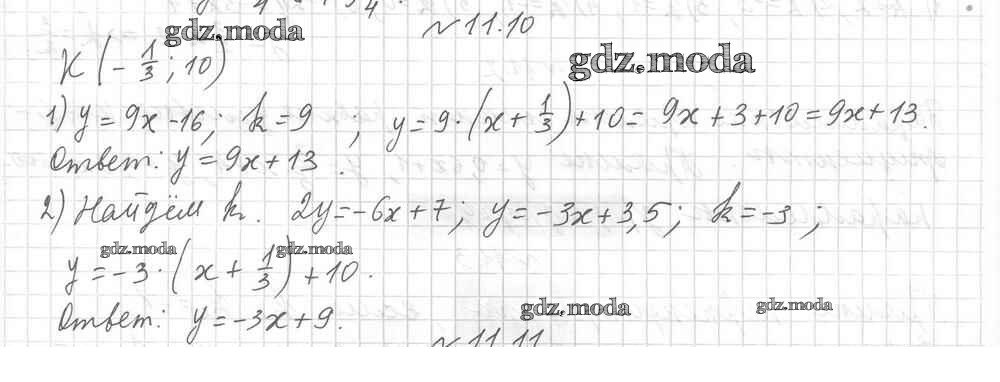 № 11.10
gdz.moda
gdz.moda
K (-1/3; 10)
1) y = 9x - 16; k = 9 ; y = 9·(x + 1/3) + 10 = 9x + 3 + 10 = 9x + 13.
Ответ: y = 9x + 13.
2) Найдём k. 2y = -6x + 7; y = -3x + 3,5; k = -3 ;
gdz.moda
gdz.moda
y = -3·(x + 1/3) + 10.
Ответ: y = -3x + 9.
gdz.moda
gdz.moda
№ 11.11